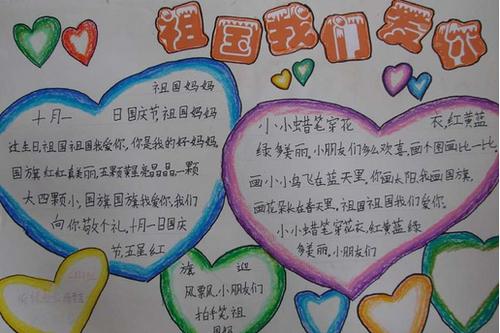 祖国我们爱你
祖国妈妈
十月一 日国庆节祖国妈妈
过生日祖国祖国我爱你,你是我的好妈妈,
国旗红红真美丽,五颗黄星亮晶晶,一颗
大四颗小,国旗国旗我爱你,我们
向你敬个礼,十月一日国庆
节,五星红
小小蜡笔穿花 衣,红黄蓝
绿多美丽,小朋友们多么欢喜,画个图画比一比,
画小小鸟飞在蓝天里,你画太阳,我画国旗,
画花朵长在春天里,祖国祖国我们爱你。
小小蜡笔穿花衣,红黄蓝绿
多美丽,小朋友们
旗 迎
风飘,小朋友们
拍手笔祖
国妈